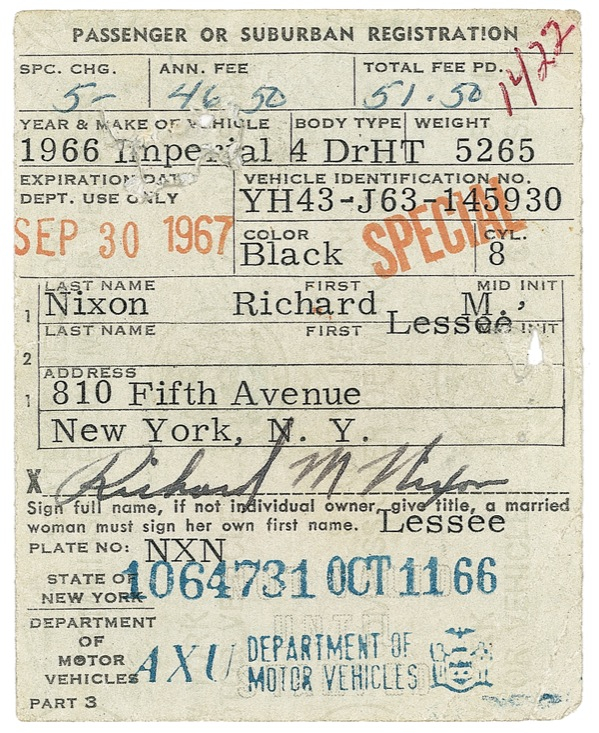 PASSENGER OR SUBURBAN REGISTRATION
1422
SPC. CHG. ANN. FEE TOTAL FEE PD.
5- 46 50 51.50
YEAR & MAKE OF VEHICLE BODY TYPE WEIGHT
1966 Imperial 4 DrHT 5265
EXPIRATION DATE VEHICLE IDENTIFICATION NO.
DEPT. USE ONLY YH43-J63-145930
SEP 30 1967 COLOR SPECIAL CYL.
Black 8
LAST NAME FIRST MID INIT
1 Nixon Richard M.,
LAST NAME FIRST Lessee MID INIT
2
ADDRESS
1 810 Fifth Avenue
New York, N. Y.
X Richard M Nixon
Sign full name, if not individual owner, give title, a married
woman must sign her own first name. Lessee
PLATE NO: NXN
STATE OF 1064731 OCT 11 66
NEW YORK
DEPARTMENT
OF DEPARTMENT OF
MOTOR AXU MOTOR VEHICLES
VEHICLES
PART 3